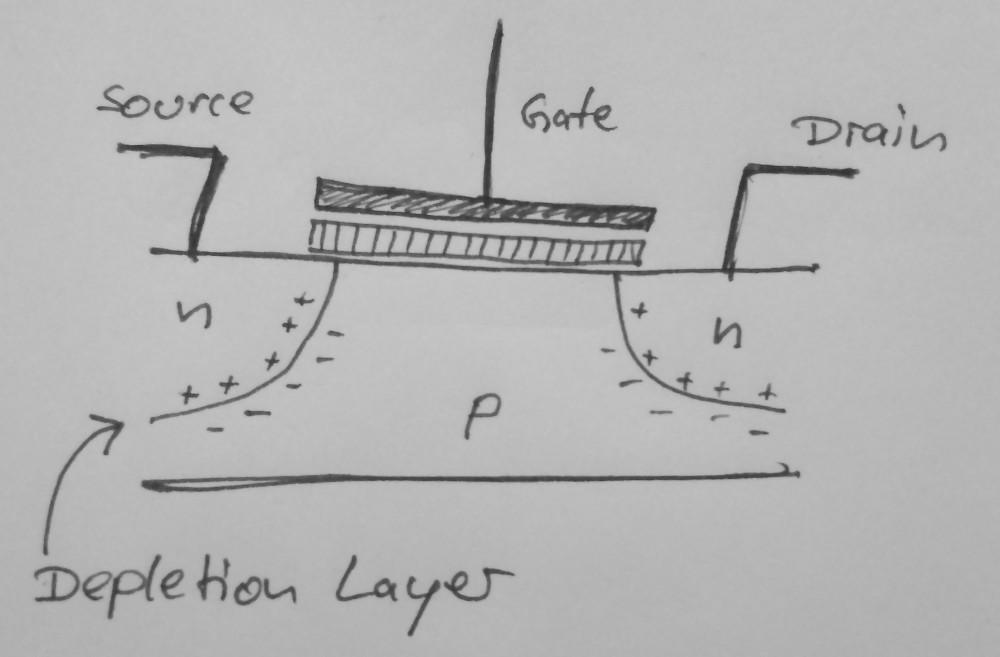 Source
Gate
Drain
n
+ + + + + - - - - -
+ + + + + - - - - - -
n
P
Depletion Layer